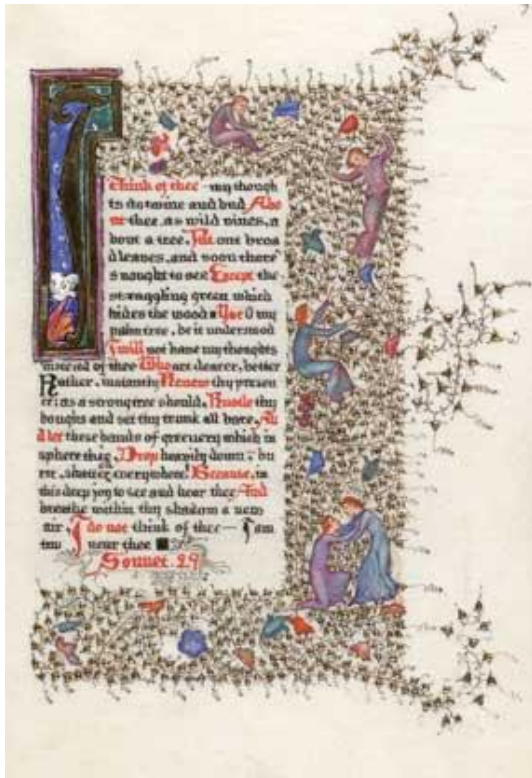 I
think of thee — my though
ts do twine and bud Abo
ut thee, as wild vines, a
bout a tree, Put out broa
d leaves, and soon there
's nought to see Except the
straggling green which
hides the wood. Yet O my
palm tree, be it understood
I will not have my thoughts
instead of thee Who art dearer, better
Rather, instantly Renew thy presen
ce: as a strong tree should, Rustle thy
boughs and set thy trunk all bare, An
d let these bands of greenery which in
sphere thee, Drop heavily down, — bu
rst, shatter everywhere! Because, in
this deep joy to see and hear thee And
breathe within thy shadow a new
air, I do not think of thee — I am
too near thee
Sonnet. 29